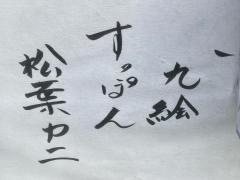 九絵
すっぽん
松葉カニ